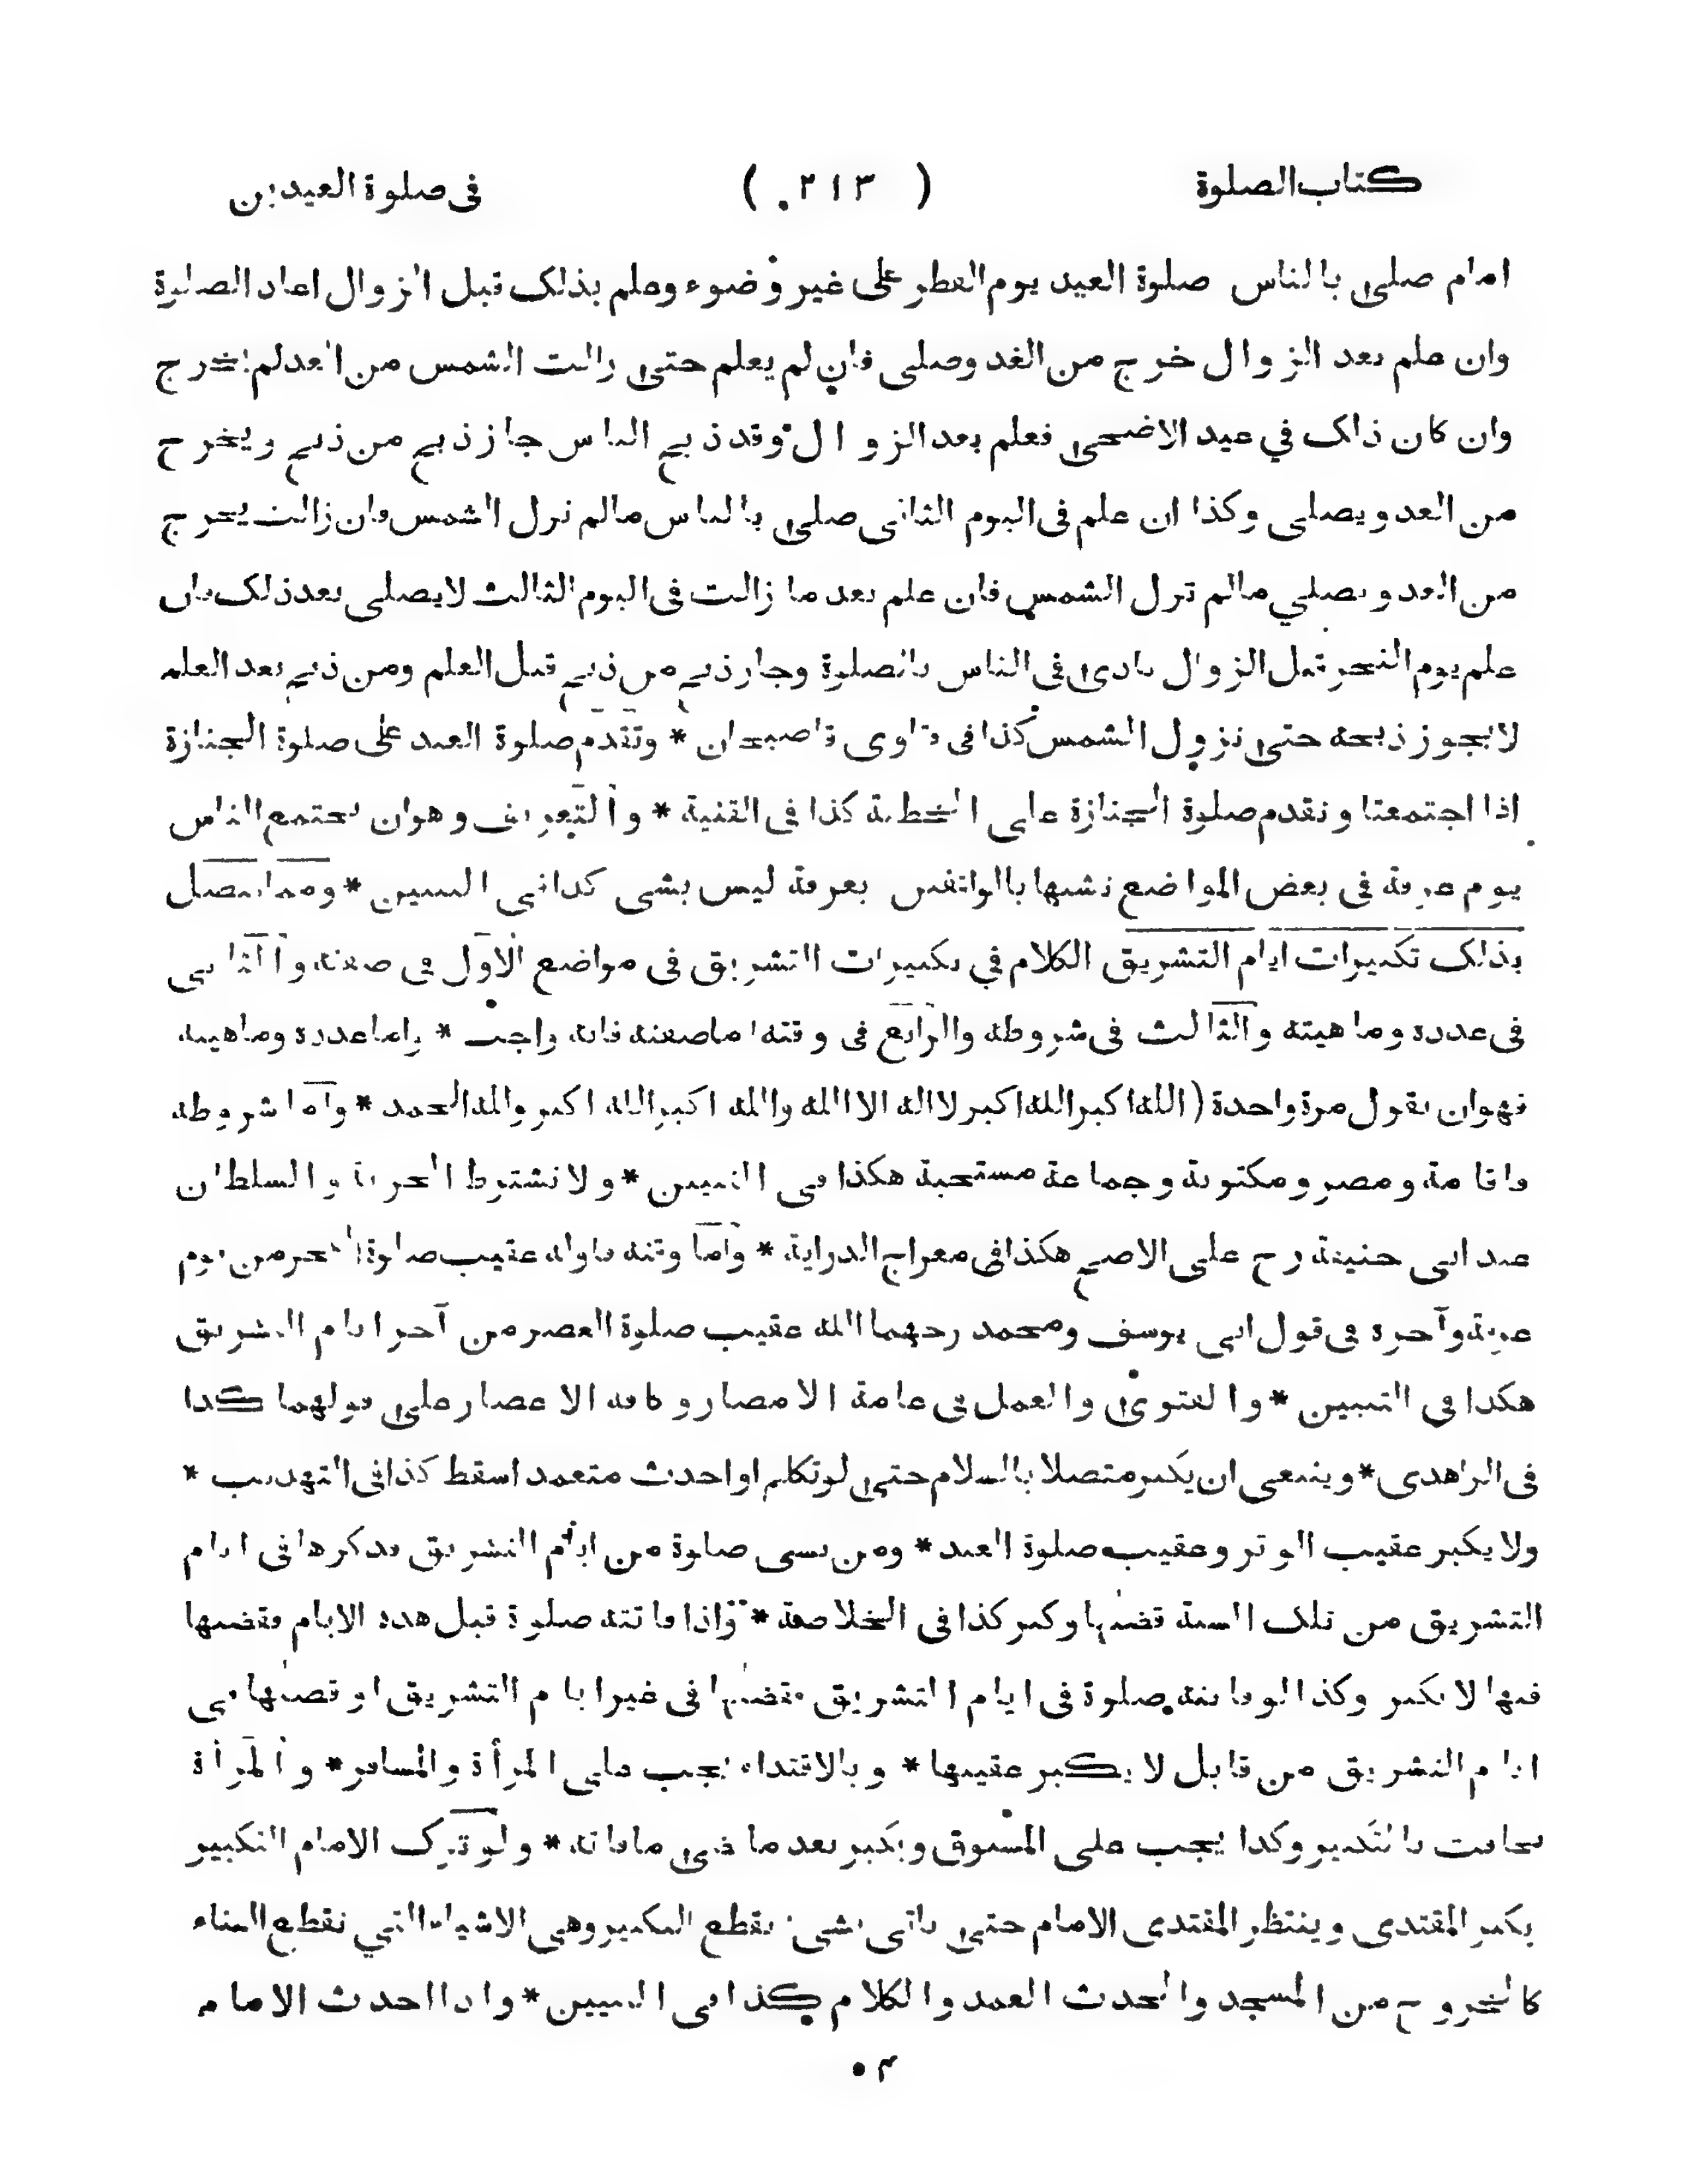 كتاب الصلوة ( ٢١٣ ) فى صلوة العيدين
امام صلى بالناس صلوة العيد يوم الفطر على غير وضوء وعلم بذلك قبل الزوال اعاد الصلوة
وان علم بعد الزوال خرج من الغد وصلى فان لم يعلم حتى زالت الشمس من الغد لم يخرج
وان كان ذلك في عيد الاضحى فعلم بعد الزوال وقد ذبح الناس جاز ذبح من ذبح ويخرج
من الغد ويصلى وكذا ان علم فى اليوم الثانى صلى بالناس مالم تزل الشمس فان زالت يخرج
من الغد ويصلي مالم تزل الشمس فان علم بعد ما زالت فى اليوم الثالث لايصلى بعد ذلك فان
علم يوم النحر قبل الزوال نادى فى الناس بالصلوة وجاز ذبح من ذبح قبل العلم ومن ذبح بعد العلم
لايجوز ذبحه حتى تزول الشمس كذا فى فتاوى قاضيخان * وتقدم صلوة العيد على صلوة الجنازة
اذا اجتمعتا وتقدم صلوة الجنازة على الخطبة كذا فى القنية * والتعريف وهو ان يجتمع الناس
يوم عرفة فى بعض المواضع تشبها بالواقفين بعرفة ليس بشى كذا فى التبيين * ومما يتصل
بذلك تكبيرات ايام التشريق الكلام في تكبيرات التشريق فى مواضع الاول فى صفته والثانى
فى عدده وماهيته والثالث فى شروطه والرابع فى وقته اما صفته فانه واجب * واما عدده وماهيته
فهو ان يقول مرة واحدة ( الله اكبر الله اكبر لا اله الا الله والله اكبر الله اكبر ولله الحمد * واما شروطه
فاقامة ومصر ومكتوبة وجماعة مستحبة هكذا فى التبيين * ولا تشترط الحرية والسلطان
عند ابى حنيفة رح على الاصح هكذا فى معراج الدراية * واما وقته فاوله عقيب صلوة الفجر من يوم
عرفة وآخره فى قول ابى يوسف ومحمد رحهما الله عقيب صلوة العصر من آخر ايام التشريق
هكذا فى التبيين * والفتوى والعمل فى عامة الامصار وكافة الاعصار على قولهما كذا
فى الزاهدى * وينبغى ان يكبر متصلا بالسلام حتى لوتكلم او احدث متعمدا سقط كذا فى التهذيب *
ولا يكبر عقيب الوتر وعقيب صلوة العيد * ومن نسى صلوة من ايام التشريق فذكرها فى ايام
التشريق من تلك السنة قضاها وكبر كذا فى الخلاصة * واذا فاتته صلوة قبل هذه الايام فقضاها
فيها لا يكبر وكذا لو فاتته صلوة فى ايام التشريق فقضاها فى غير ايام التشريق او قضاها فى
ايام التشريق من قابل لا يكبر عقيبها * وبالاقتداء يجب على المرأة والمسافر * والمرأة
تخافت بالتكبير وكذا يجب على المسبوق ويكبر بعد ما قضى مافاته * ولو ترك الامام التكبير
يكبر المقتدى وينتظر المقتدى الامام حتى ياتى بشى يقطع التكبير وهى الاشياء التي تقطع البناء
كالخروج من المسجد والحدث العمد والكلام كذا فى التبيين * واذا احدث الامام